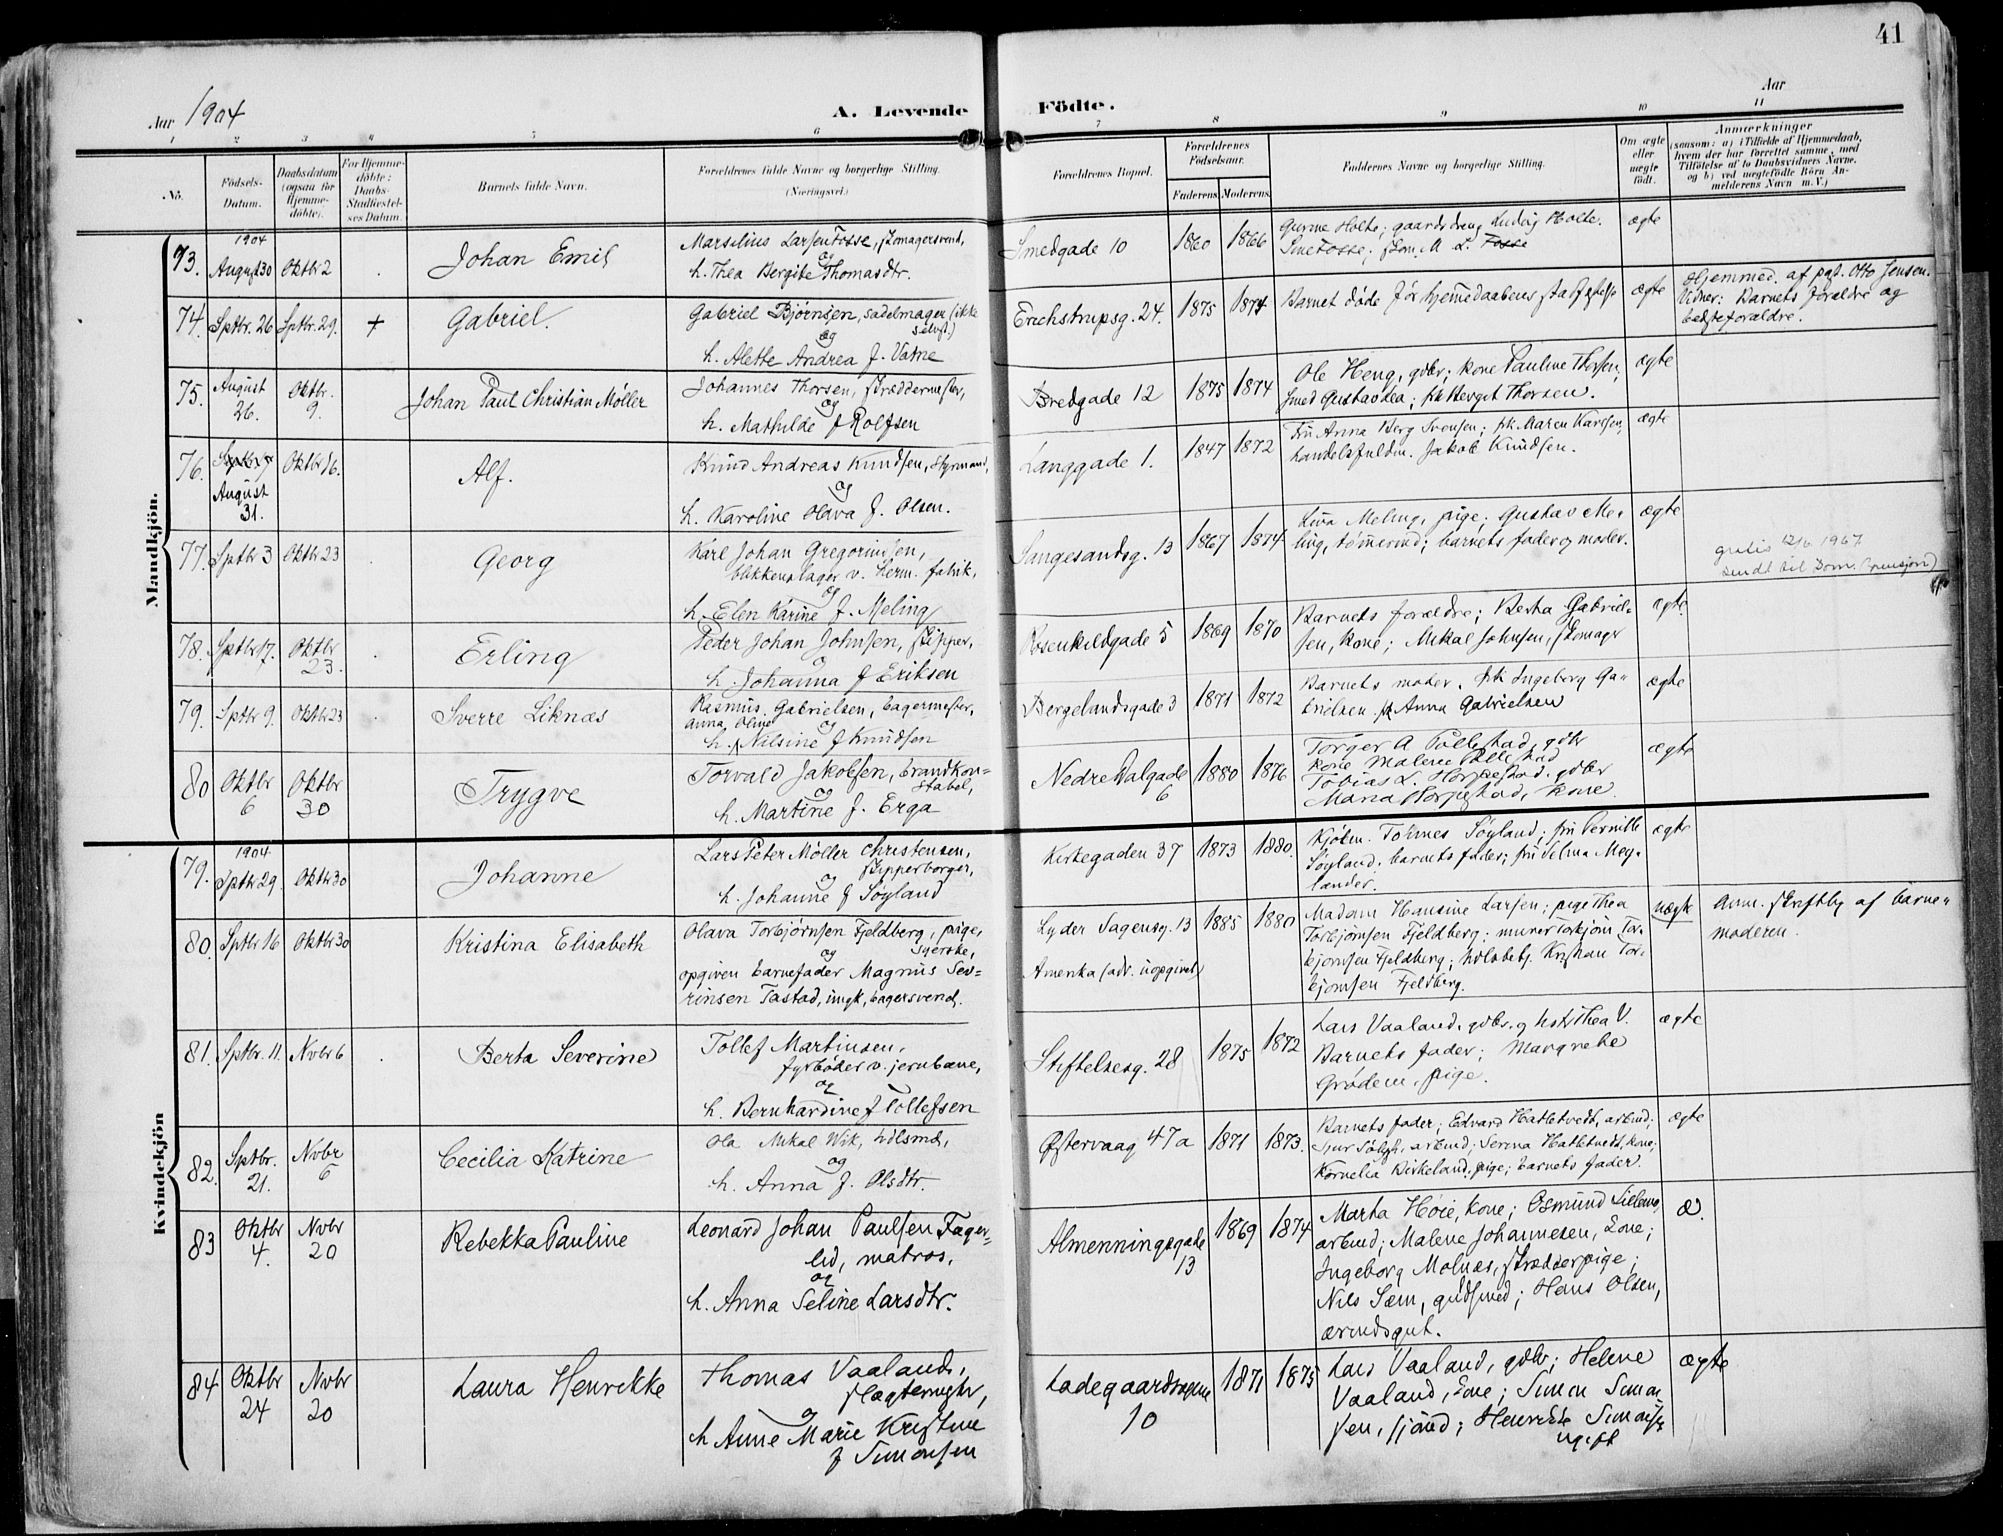 41
Aar 1904
A. Levende Födte.
Aar
1 2 3 4 5 6 7 8 9 10 11
No.
Födsels-Datum.
Daabsdatum (ogsaa for Hjemmedöbte).
For Hjemmedöbte: Daabs-Stadfæstelses Datum.
Barnets fulde Navn.
Forældrenes fulde Navne og borgerlige Stilling. (Næringsvei.)
Forældrenes Bopæl.
Forældrenes Födselsaar.
Faderens Moderens
Faddernes Navne og borgerlige Stilling.
Om ægte eller uægte födt.
Anmærkninger
(saasom: a) i Tilfælde af Hjemmedaab,
hvem der har forrettet samme, med
Tilföielse af to Daabsvidners Navne,
og b) ved uægtefödte Börn An-
melderens Navn m. V.)
Mandkjön.
73. 1904 August 30 Oktbr 2 Johan Emil
Marsilius Larsen Fosse, skomagersvend,
og
h. Thea Bergite Thomasdtr.
Smedgade 10 1860 1866
Gurine Holte; gaardsdreng Ludvig Holte.
Sine Fosse; skom. M. L. Fosse
ægte
74. Sptbr. 26 Sptbr. 29. + Gabriel.
Gabriel Bjørnsen, sadelmager (ikke
selvst.)
og
h. Alette Andrea f. Vatne
Erichstrupsg. 24. 1875 1874
Barnet døde før hjemmedaabens stadfæstelse
ægte
Hjemmed. af pat. Otto Jensen.
Vidner: Barnets forældre og
bedsteforældre.
75. August 26. Oktbr. 9. Johan Paul Christian Møller
Johannes Thorsen, skræddermester,
og
h. Mathilde f Rolfsen
Bredgade 12 1875 1874
Ole Heng, gdbr; kone Pauline Thorsen;
smed Gustav Lea; frk Berget Thorsen.
ægte
76. August 31. Oktbr 16. Alf.
Knud Andreas Knudsen, styrmand,
og
h. Karoline Olava f. Olsen.
Langgade 1. 1847 1872
Fru Anna Berg Svensen; frk Maren Karlsen;
handelsfuldm. Jakob Knudsen.
ægte
77. Sptbr 3 Oktbr 23 Georg
Karl Johan Gregoriusen,
blikkenslager v. herm. fabrik,
og
h. Elen Karine f. Meling
Sangesandsg. 13 1867 1874
Lina Meling, pige; Gustav Me-
ling, tømmermd; barnets fader og moder.
ægte
gratis 12/6 1967
sendt til Dom. (pensjon)
78. Sptbr 17. Oktbr 23. Erling
Peder Johan Johnsen, skipper,
og
h. Johanna f Eriksen
Rosenkildgade 5 1869 1870
Barnets forældre; Berta Gabriel-
sen, kone; Mikal Johnsen, skomager
ægte
79. Sptbr 9. Oktbr 23 Sverre Liknæs
Rasmus Gabrielsen, bagermester,
Anna Oline og
h. Nilsine f Knudsen
Bergelandsgade 3 1871 1872
Barnets moder. frk Ingeborg Ga-
brielsen. frk Anna Gabrielsen
ægte
80 Oktbr 6 Oktbr 30 Trygve
Torvald Jakobsen, brandkon-
stabel,
og
h. Martine f. Erga
Nedre Dalgade 6 1880 1876
Torger A Pollestad, gdbr
kone Malene Pollestad
Tobias L. Horpestad, gdbr
Maria Horpestad, kone.
ægte
Kvindekjön
79. 1904 Sptbr 29. Oktbr 30 Johanne
Lars Peter Møller Christensen,
skipperborger,
og
h. Johanne f Søyland
Kirkegaden 37 1873 1880.
Kjøbm. Tønnes Søyland; fru Pernille
Søyland; barnets fader; fru Selma Mey-
lænder.
ægte
80. Sptbr 16 Oktbr 30 Kristina Elisabeth
Olava Torbjørnsen Fjeldberg, pige,
syerske,
og
opgiven barnefader Magnus Sev-
rinsen Tastad, ungk, bagersvend.
Lyder Sagensg. 13
Amerika (adr. uopgivet)
1885 1880
Madam Hansine Larsen; pige Thea
Torbjørnsen Fjeldberg; murer Torbjørn Tor-
bjørnsen Fjeldberg; Kristian Tor-
bjørnsen Fjeldberg.
uægte
Anm. skriftlig af barne-
moderen.
81. Sptbr. 11. Nvbr 6 Berta Severine
Tollef Martinsen,
fyrbøder v. jernbane,
og
h. Bernhardine f Tollefsen
Stiftelsesg. 28 1875 1872
Lars Vaaland, gdbr. og hstr Thea V.
Barnets fader; Margrethe
Grødem, pige.
ægte
82. Sptbr. 21. Nvbr 6 Cecilia Katrine
Ola Mikal Wik, hdlsmd,
og
h. Anna f. Olsdtr.
Østervaag 47a 1871 1873.
Barnets fader; Edvard Hatletvedt, arbmd;
arbmd; Serina Hatletvedt, kone;
Kornelia Birkeland, pige; barnets fader.
ægte
83 Oktbr 4. Nvbr 20 Rebekka Pauline
Leonard Johan Paulsen Fager-
lid, matros,
og
h. Anna Seline Larsdtr.
Almenningsgade 13 1869 1874
Marta Høie, kone; Osmund Lillemo,
arbmd; Malene Johannesen, kone;
Ingeborg Molnæs, skrædderpige;
Nils Sæm, guldsmed; Hans Olsen,
ærendsgut.
æ.
84 Oktbr 24 Nvbr 20 Laura Henrikke
Thomas Vaaland,
slagtersvend,
og
h Anne Marie Kristine
f Simonsen
Ladegaardsveien 10 1871 1875
Lars Vaaland, gdbr; Helene
Vaaland, kone; Simon Simon-
sen, sjømd; Henrikke Simonsen
ugift
ægte